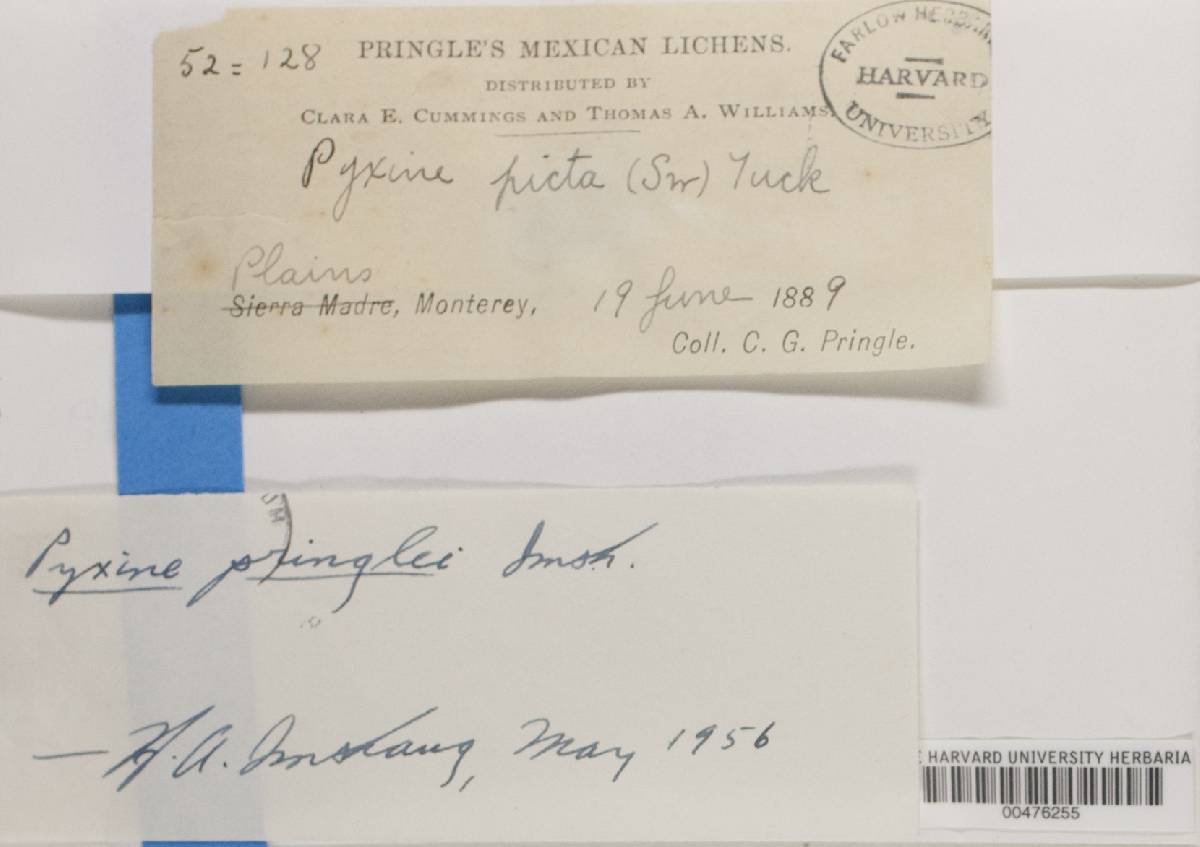 52 = 128
PRINGLE'S MEXICAN LICHENS.
DISTRIBUTED BY
CLARA E. CUMMINGS AND THOMAS A. WILLIAMS.
FARLOW HERBARI
HARVARD
UNIVERSITY
Pyxine picta (Sw) Tuck
Plains
Sierra Madre, Monterey, 19 June 1889
Coll. C. G. Pringle.
Pyxine pringlei Imsh.
— H. A. Imshaug, May 1956
HARVARD UNIVERSITY HERBARIA
00476255